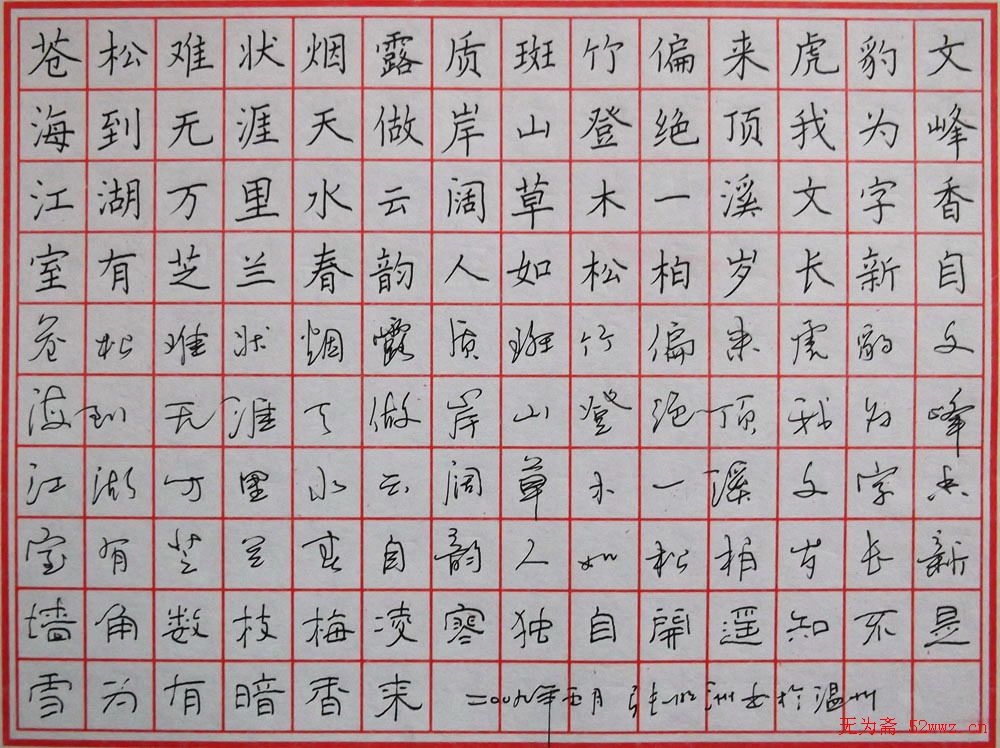 苍松难状烟露质斑竹偏来虎豹文
海到无涯天做岸山登绝顶我为峰
江湖万里水云阔草木一溪文字香
室有芝兰春韵人如松柏岁长新自
苍松难状烟露质斑竹偏来虎豹文
海到无涯天做岸山登绝顶我为峰
江湖万里水云阔草木一溪文字香
室有芝兰春自韵人如松柏岁长新
墙角数枝梅凌寒独自開遥知不是
雪为有暗香来 二〇〇九年五月 张 洲书于温州
无为斋 52wwz.cn